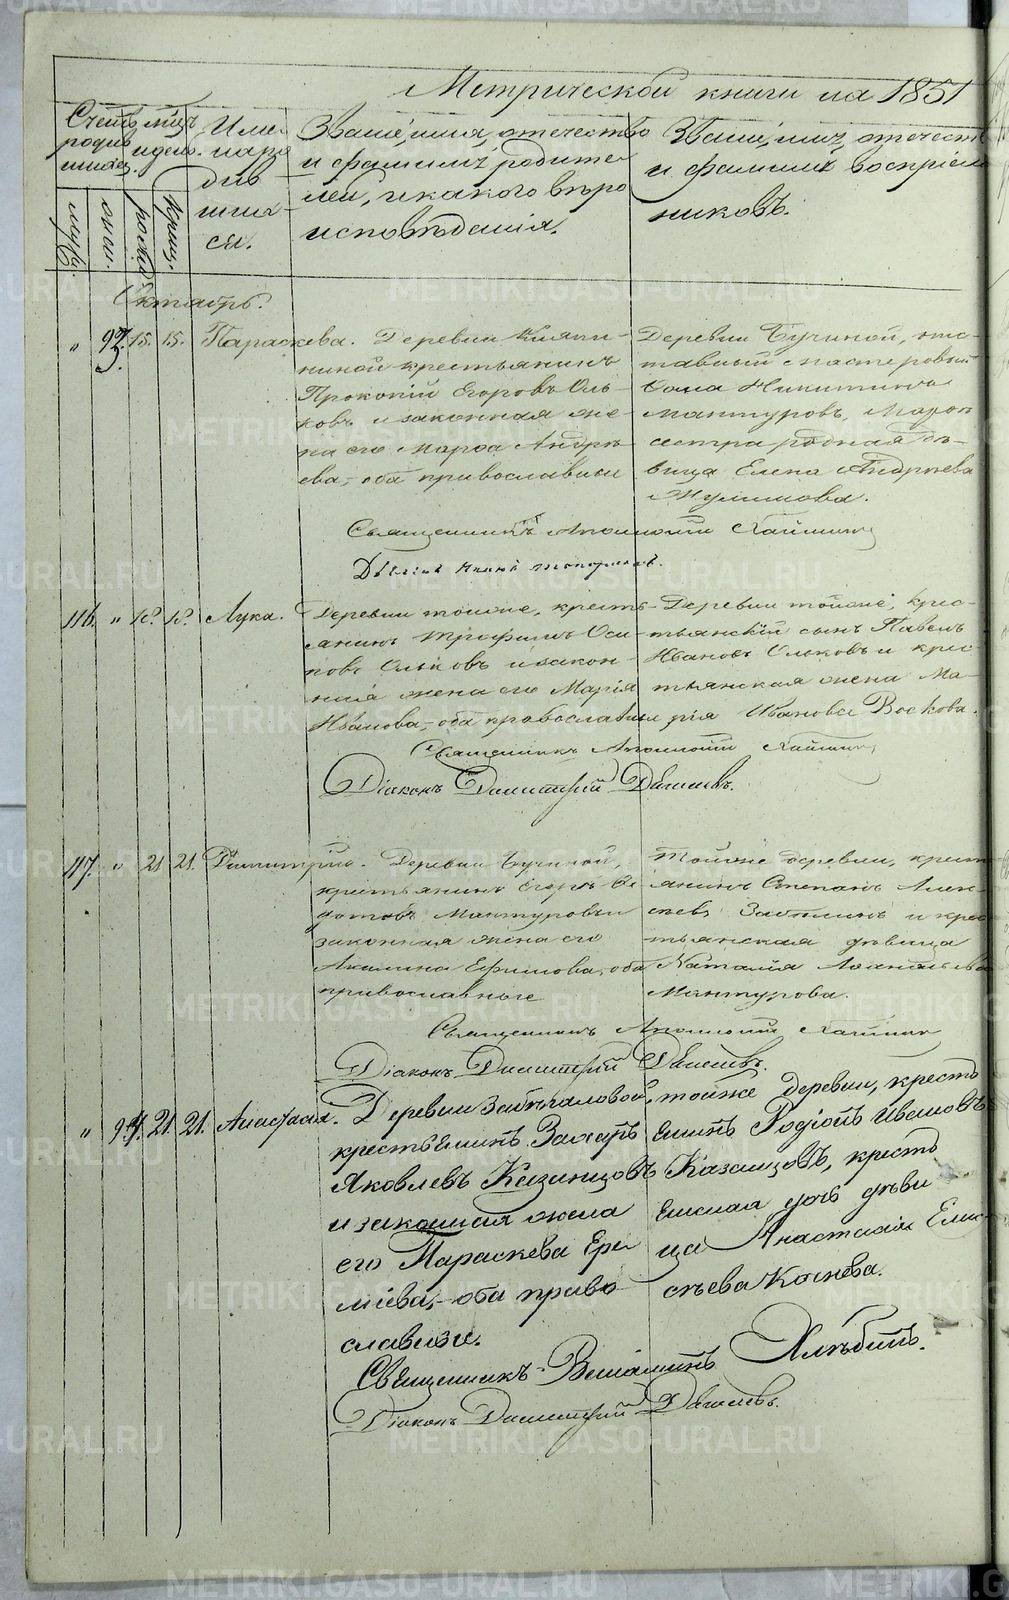 Метрической книги на 1851
Счетъ родив шихся.
мцъ и день.
Име на ро див ших ся.
Званіе, имя, отечество
и фамилія родите
лей, и какого вѣро
исповѣданія.
Званіе, имя, отечеств
и фамилія воспріем
никовъ.
мужс.
женс.
рожд.
крещ.
Октябрь.
" 93. 15. 15. Параскева.
Деревни
крестьянинъ
Прокопій Егоровъ Оль-
ковъ и законная же-
на его Марѳа Андре-
ева, оба православные
Деревни Бучиной, отс-
тавный мастеровый
Ѳома Никитинъ
Мантуровъ,
сестра родная дѣ-
вица Елена Андреева
Священникъ Аполлоній
116. " 18. 18. Лука.
Деревни тойже, кресть-
янинъ Трофимъ Оси-
повъ Ольковъ и закон-
ная жена его Марія
Иванова, оба православные
Деревни тойже, крес-
тьянскій сынъ Павелъ
Ивановъ Ольковъ и крес-
тьянская жена Ма-
рія Иванова Воскова.
Священникъ Аполлоній
Діаконъ Димитрій Дягилевъ.
117. " 21 21. Димитрій.
Деревни Бучиной,
крестьянинъ Егоръ Ѳе
дотовъ Мантуровъ и
законная жена его
Акилина Ефимова, оба
православные
Тойже деревни, крест
янинъ Степанъ Алек-
сѣевъ и крес
тьянская дѣвица
Наталія
Мантурова.
Священникъ Аполлоній
Діаконъ Димитрій Дягилевъ.
" 94. 21. 21. Анастасія.
Деревни
крестьянинъ Захаръ
Яковлевъ Казанцовъ
и законная жена
его Параскева Ере
міева, оба право
славные.
тойже деревни, кресть
янинъ Родіонъ Ивановъ
Казанцовъ, кресть
янская дочь дѣви
ца Анастасія Елис
ѣева Конева.
Священникъ Веніаминъ Хлѣбинъ.
Діаконъ Димитрій Дягилевъ.
METRIKI.GASO-URAL.RU